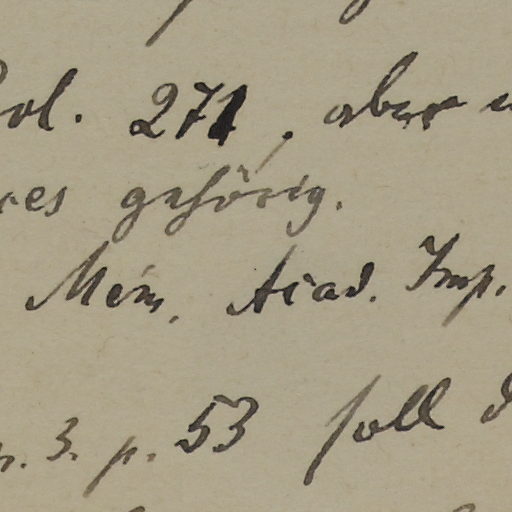 ol. 271, aber
es gehörig.
Mém. Acad. Imp.
3. p. 53 soll